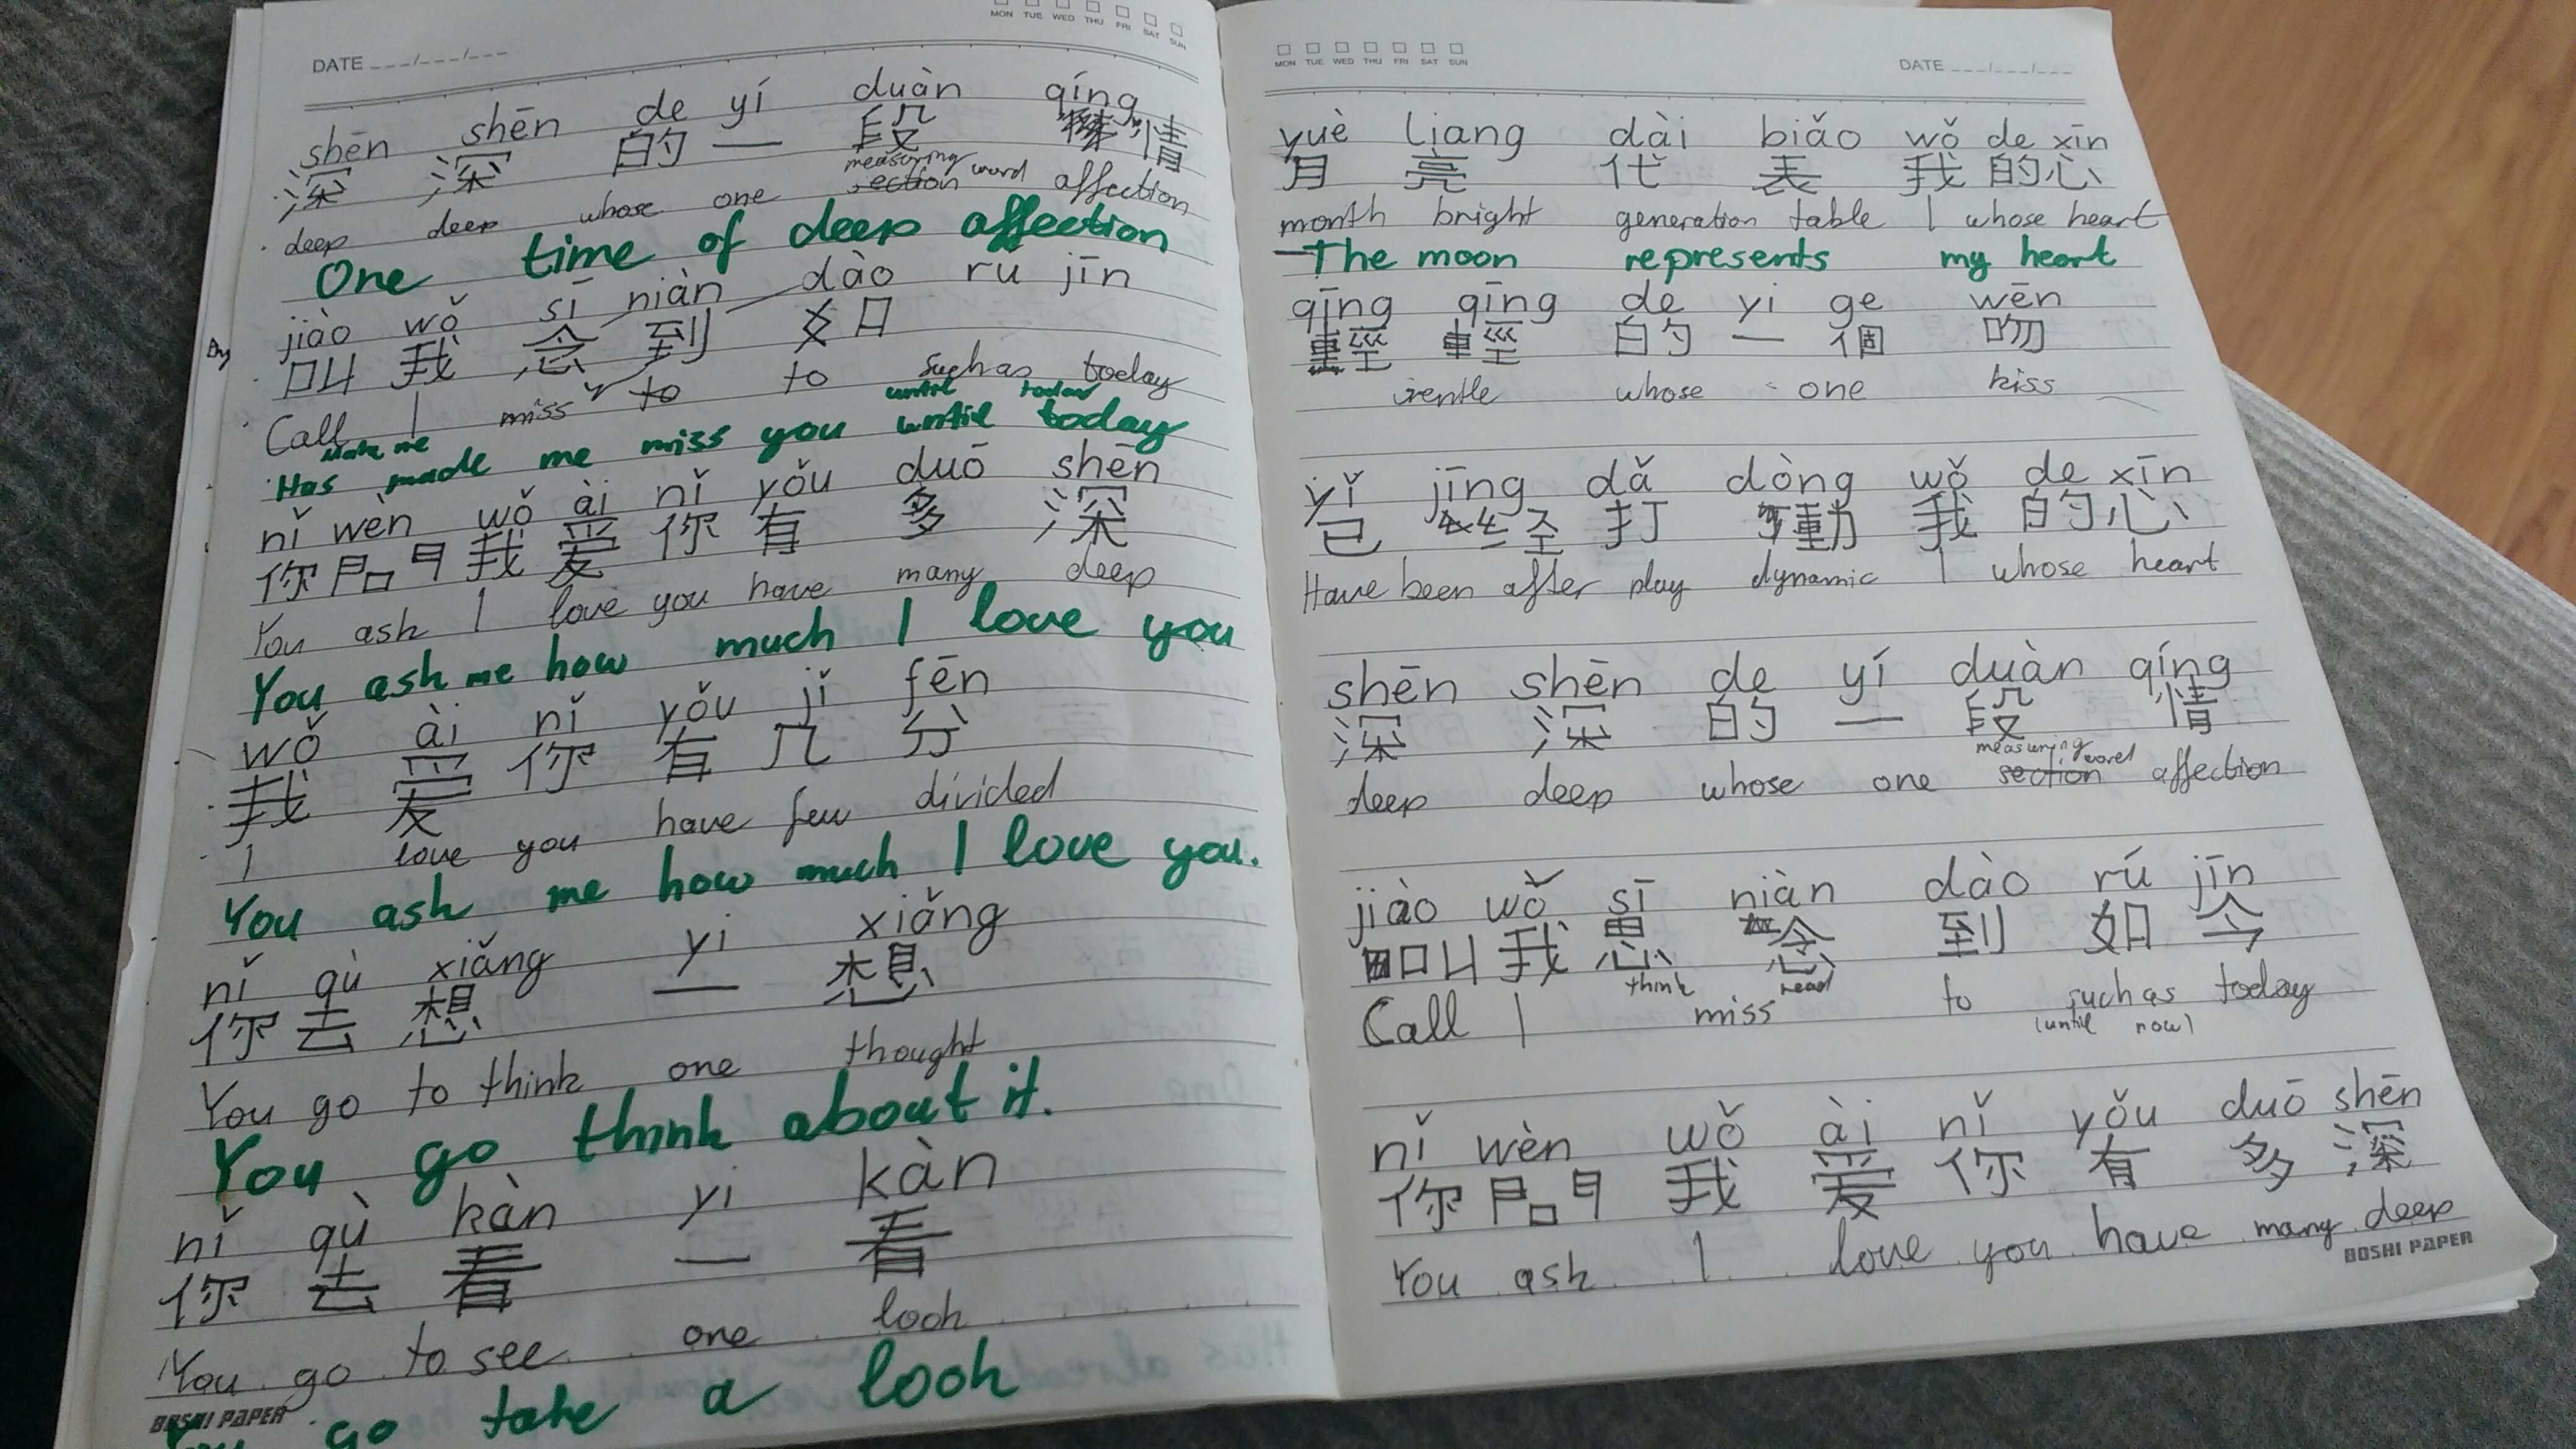 DATE ___/___/___
MON TUE WED THU FRI SAT SUN
shēn shēn de yí duàn qíng
深 深 的 一 段 情
measuring word
deep deep whose one section affection
One time of deep affection
jiào wǒ sī niàn dào ru jīn
叫 我 念 到 如
Call I miss to to such as today
until today
Make me
Has made me miss you until today
nǐ wèn wǒ ài nǐ yǒu duō shēn
你 問 我 爱 你 有 多 深
You ask I love you have many deep
You ask me how much I love you
wǒ ài nǐ yǒu jǐ fēn
我 爱 你 有 几 分
I love you have few divided
You ask me how much I love you.
nǐ qù xiǎng yi xiǎng
你 去 想 一 想
You go to think one thought
You go think about it.
nǐ qù kàn yi kàn
你 去 看 一 看
You go to see one look
You go take a look
BOSHI PAPER
MON TUE WED THU FRI SAT SUN
DATE ___/___/___
yuè liang dài biǎo wǒ de xīn
月 亮 代 表 我 的 心
month bright generation table I whose heart
The moon represents my heart
qīng qīng de yi ge wěn
輕 輕 的 一 個 吻
gentle whose one kiss
yǐ jīng dǎ dòng wǒ de xīn
已 经 打 動 我 的 心
Have been after play dynamic I whose heart
shēn shēn de yí duàn qíng
深 深 的 一 段 情
measuring word
deep deep whose one section affection
jiào wǒ sī niàn dào rú jīn
叫 我 思 念 到 如 今
think read
Call I miss to such as today
(until now)
nǐ wèn wǒ ài nǐ yǒu duō shēn
你 問 我 爱 你 有 多 深
You ask I love you have many deep
BOSHI PAPER